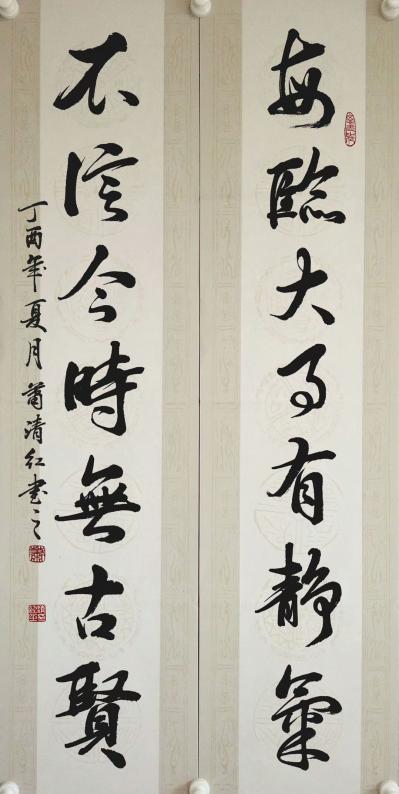 每臨大事有靜氣
不信今時無古賢
丁酉年夏月蕭清紅書之